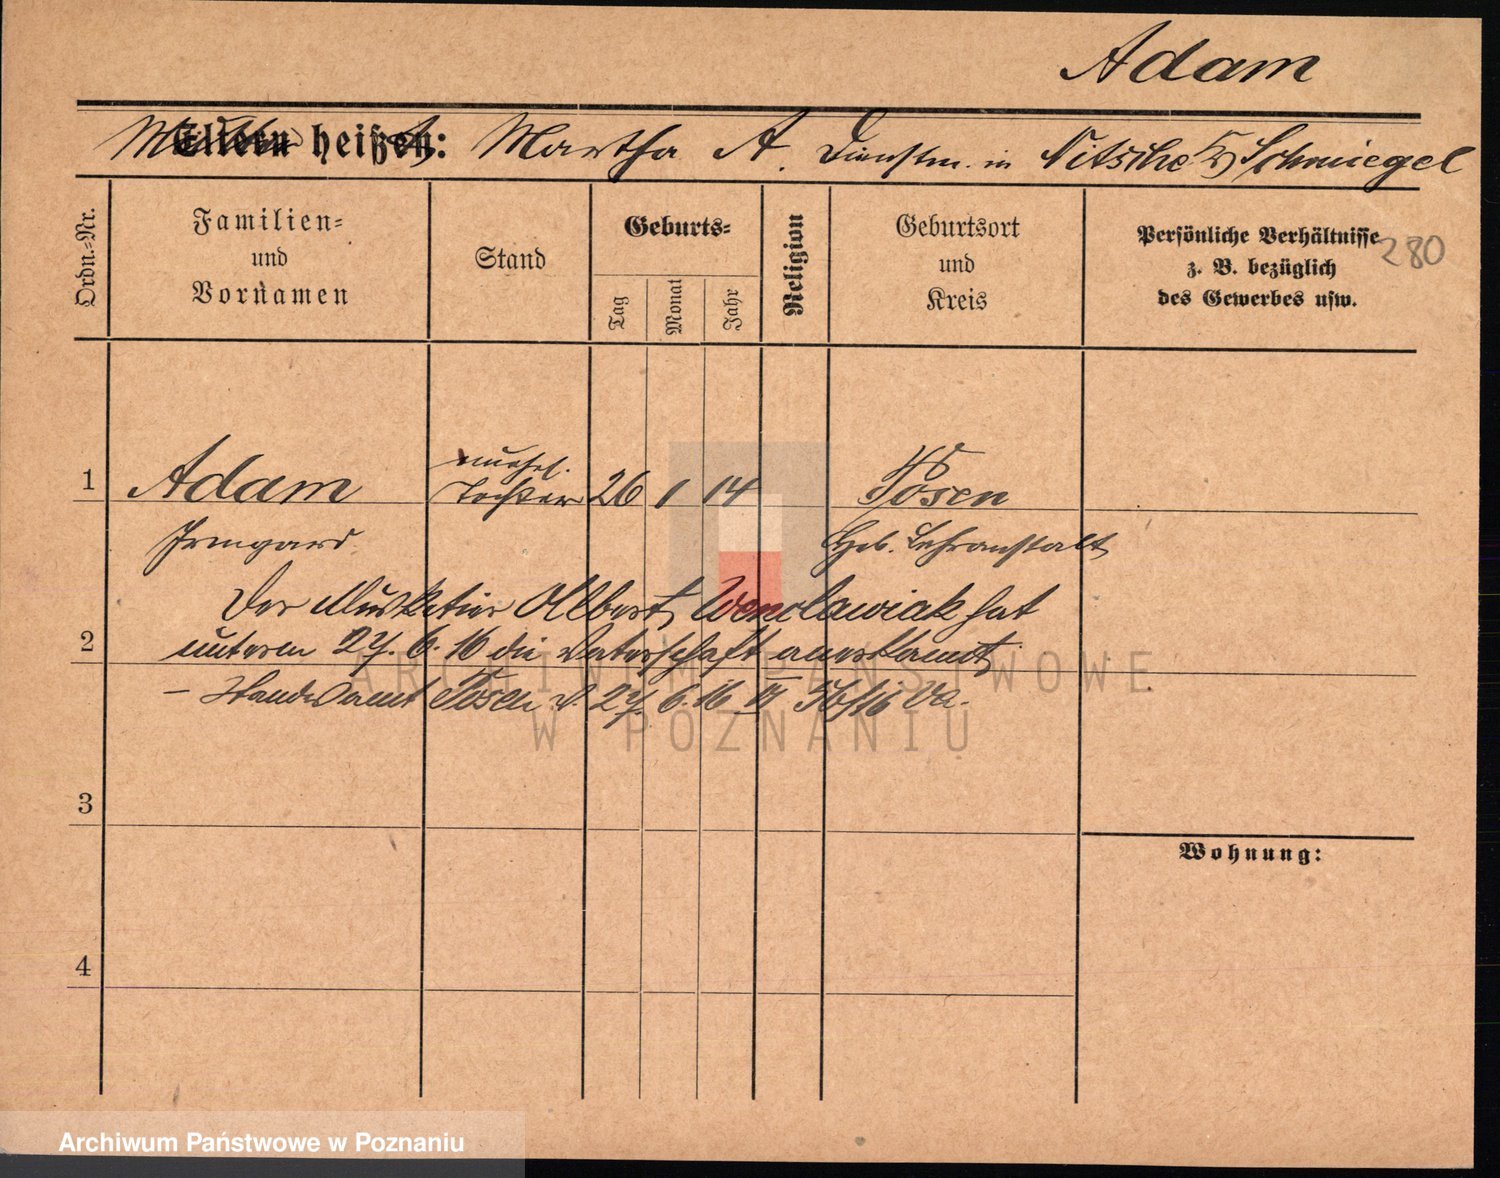 Adam
Eltern heißen: Martha A. Dienstm. in Nitsche Kr Schmiegel
Ordn.-Nr.
Familien-
und
Vornamen
Stand
Geburts-
Tag
Monat
Jahr
Religion
Geburtsort
und
Kreis
Persönliche Verhältnisse
z. B. bezüglich
des Gewerbes usw.
280
1 Adam unehel. Tochter 26 1 14 Posen
Irmgard Heb. Lehranstalt
Der Musketier Albert Wenclawiak hat
2 unterm 27. 6. 16 die Vaterschaft anerkannt
– Standesamt Posen v. 27. 6. 16 II
3
Wohnung:
4
ARCHIWUM PAŃSTWOWE
W POZNANIU
Archiwum Państwowe w Poznaniu